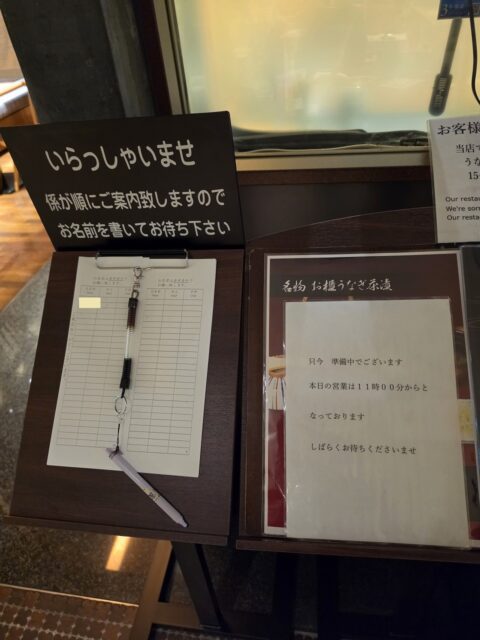 いらっしゃいませ
係が順にご案内致しますので
お名前を書いてお待ち下さい
名物 お櫃うなぎ茶漬
只今 準備中でございます
本日の営業は11時00分からと
なっております
しばらくお待ちくださいませ
お客様
当店で
うな
15
Our resta
We're sorr
Our resta